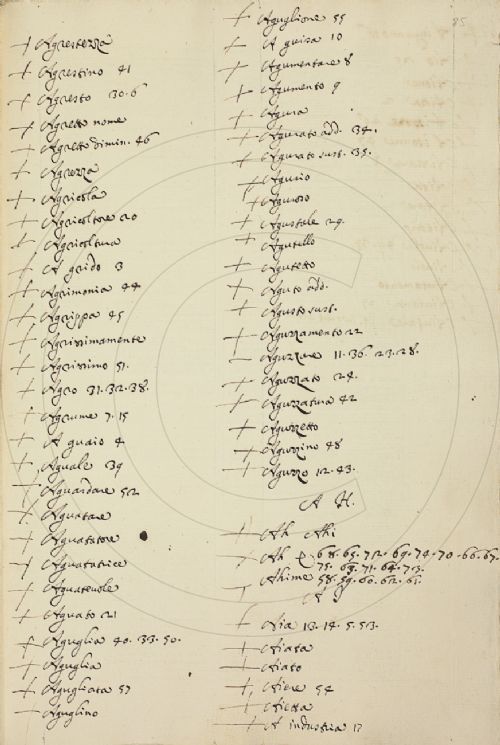 85
+ Agrestezza
+ Agrestino 41
+ Agresto 30. 6
+ Agretto nome
+ Agretto dimin. 46
+ Agrezza
+ Agricola
+ Agricoltore 20
+ Agricoltura
+ A grido 3
+ Agrimonia 44
+ Agrippa 45
+ Agrissimamente
+ Agrissimo 51.
+ Agro 31. 32. 38.
+ Agrume 7. 15
+ A guaio 4
+ Aguale 39
+ Aguardare 52
+ Aguatare
+ Aguatatore
+ Aguatatrice
+ Aguatevole
+ Aguato 21
+ Aguglia 40. 33. 50.
+ Aguglia
+ Agugliata 57
+ Aguglino
+ Aguglione 55
+ A guisa 10
+ Agumentare 8
+ Agumento 9
+ Agura
+ Agurato add. 34.
+ Agurato sust. 35.
+ Agurio
+ Aguroso
+ Agustale 29.
+ Agutello
+ Agutetto
+ Aguto add.
+ Aguto sust.
+ Aguzzamento 22
Aguzzare 11. 36. 23. 28.
+ Aguzzato 24.
+ Aguzzatura 42
+ Aguzzetto
+ Aguzzino 48
+ Aguzzo 12. 43.
A H.
+ Ah Ahi
+ Ah
75. 63. 71. 64. 73.
Ahime 58. 59. 60. 62. 61.
+ Aia 13. 14. 5. 53.
+ Aiata
+ Aiato
+ Aiere 54
+ Aietta
+ A industria 17